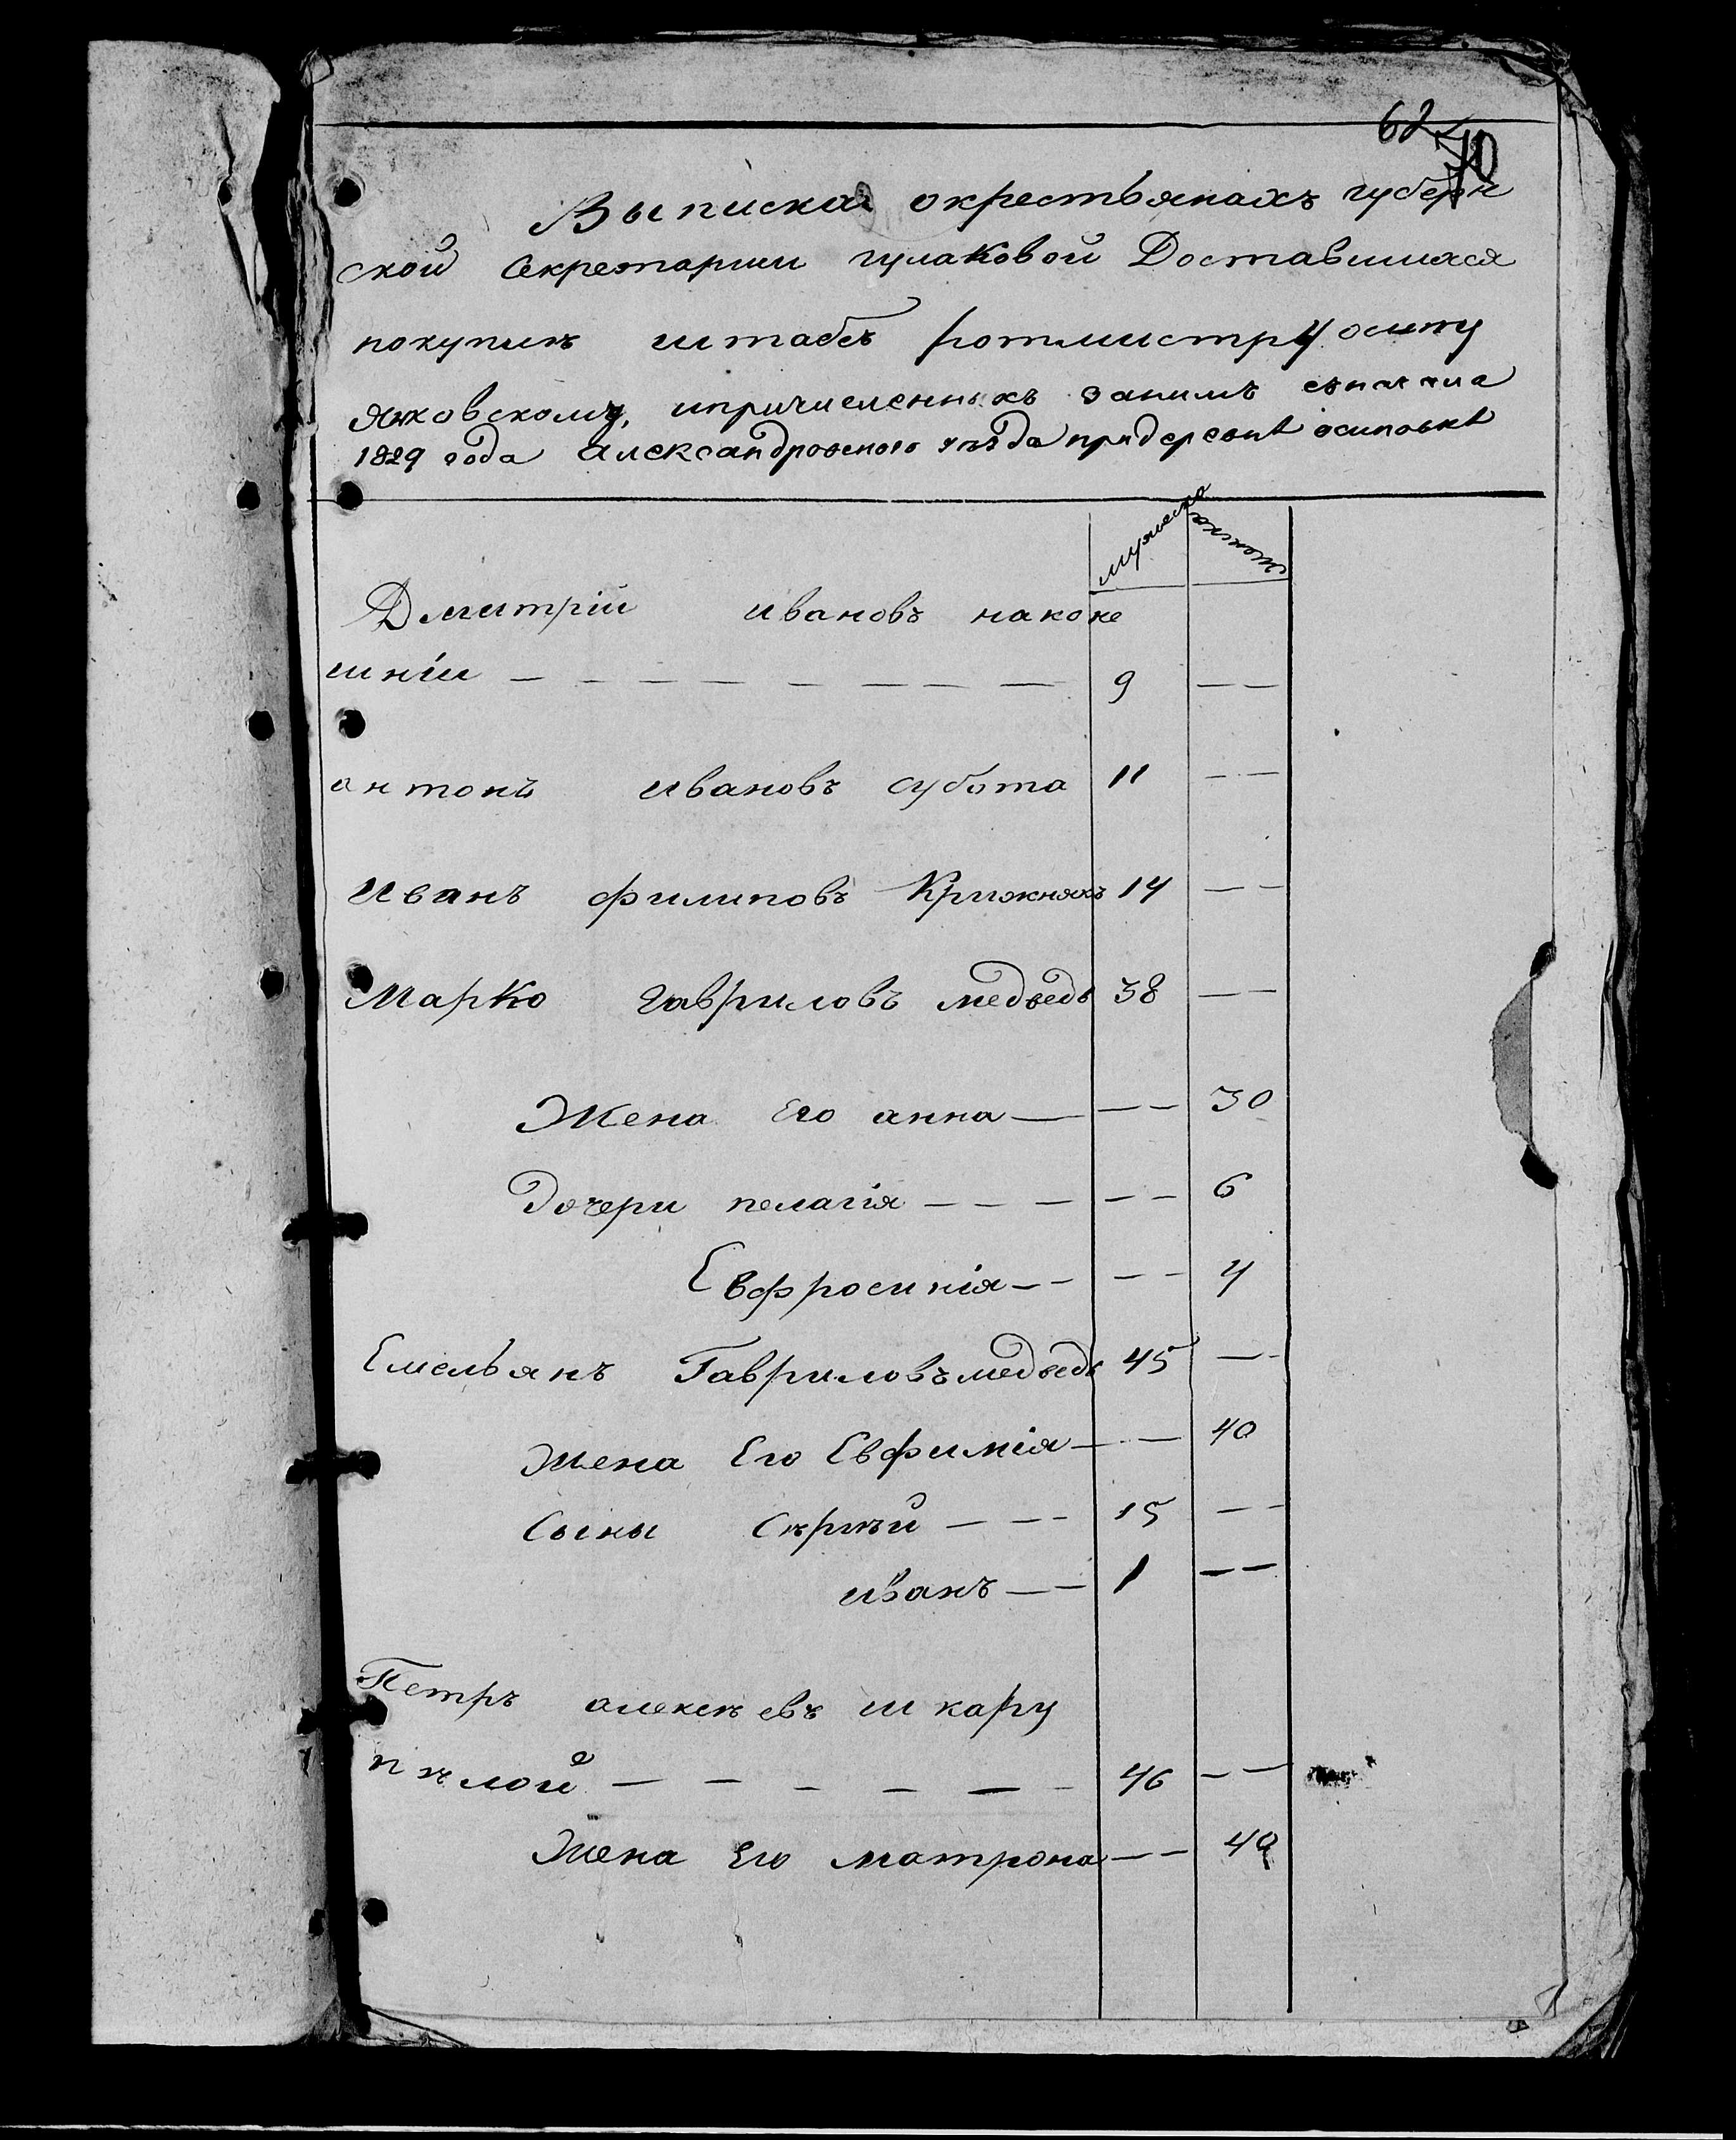 62
70
Выписка окрестьянахъ губерн
ской Секретарши гулаковой Доставшихся
покупкѣ штабъ ротмистру осипу
Яковскому, ипричисленныхъ занимъ съначала
1829 года Александровского уѣзда придеревнѣ осиповкѣ
мужеска женска
Дмитрій ивановъ наконе
шніи — — — — — — — — 9 — —
антонъ ивановъ субота 11 — —
иванъ филиповъ Крижнякъ 14 — —
Марко гавриловъ медведь 38 — —
Жена Его анна — — — 30
Дочери пелагія — — — — — 6
Евфросинія — — — — 4
Емельянъ Гавриловъ медведь 45 — —
Жена Его Евфимія — — 40
Сыны Сергѣй — — — 15 — —
иванъ — — 1 — —
Петръ алексѣевъ шкару
пѣлой — — — — — — 46 — —
Жена Его матрона — — 40